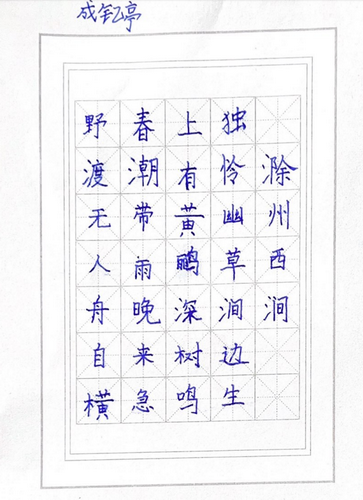 成钇亭
滁州西涧
独怜幽草涧边生
上有黄鹂深树鸣
春潮带雨晚来急
野渡无人舟自横